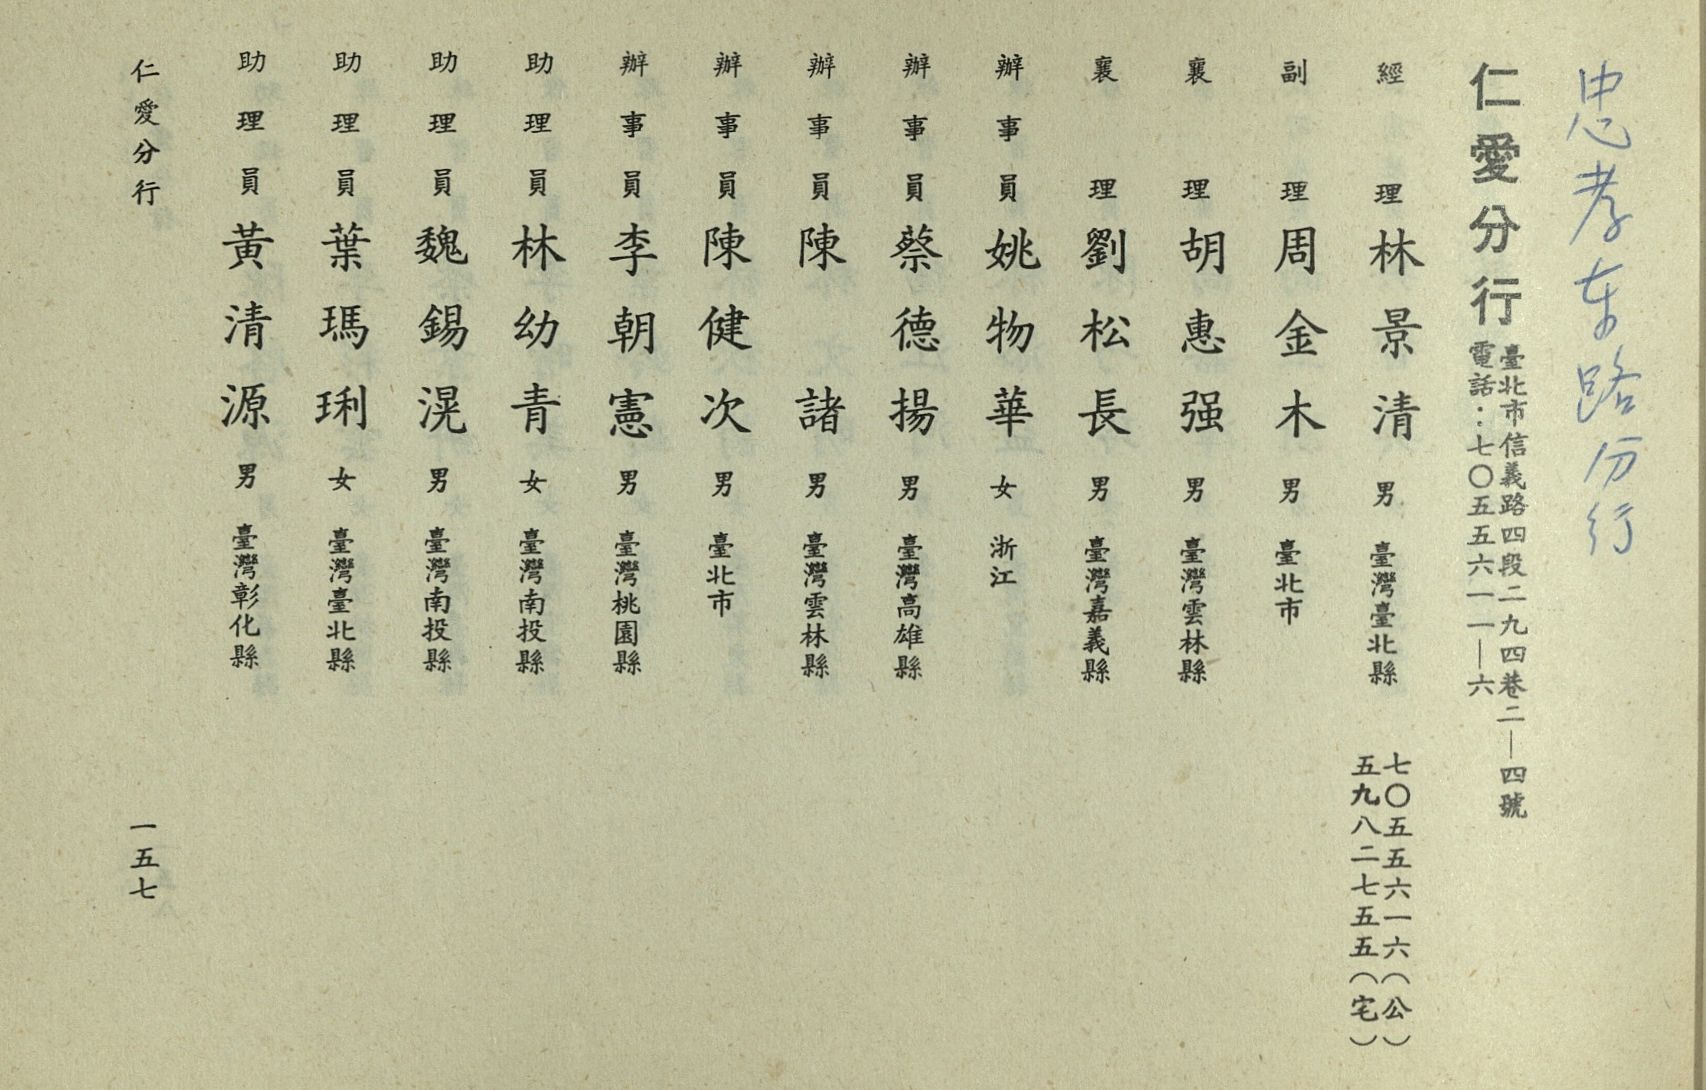 忠孝东路分行
仁愛分行
臺北市信義路四段二九四巷二—四號
電話：七〇五五六一一—六
經理 林景清 男 臺灣臺北縣 七〇五五六一六（公）
五九八二七五五（宅）
副理 周金木 男 臺北市
襄理 胡惠强 男 臺灣雲林縣
襄理 劉松長 男 臺灣嘉義縣
辦事員 姚物華 女 浙江
辦事員 蔡德揚 男 臺灣高雄縣
辦事員 陳諸 男 臺灣雲林縣
辦事員 陳健次 男 臺北市
辦事員 李朝憲 男 臺灣桃園縣
助理員 林幼青 女 臺灣南投縣
助理員 魏錫滉 男 臺灣南投縣
助理員 葉瑪琍 女 臺灣臺北縣
助理員 黃清源 男 臺灣彰化縣
仁愛分行 一五七